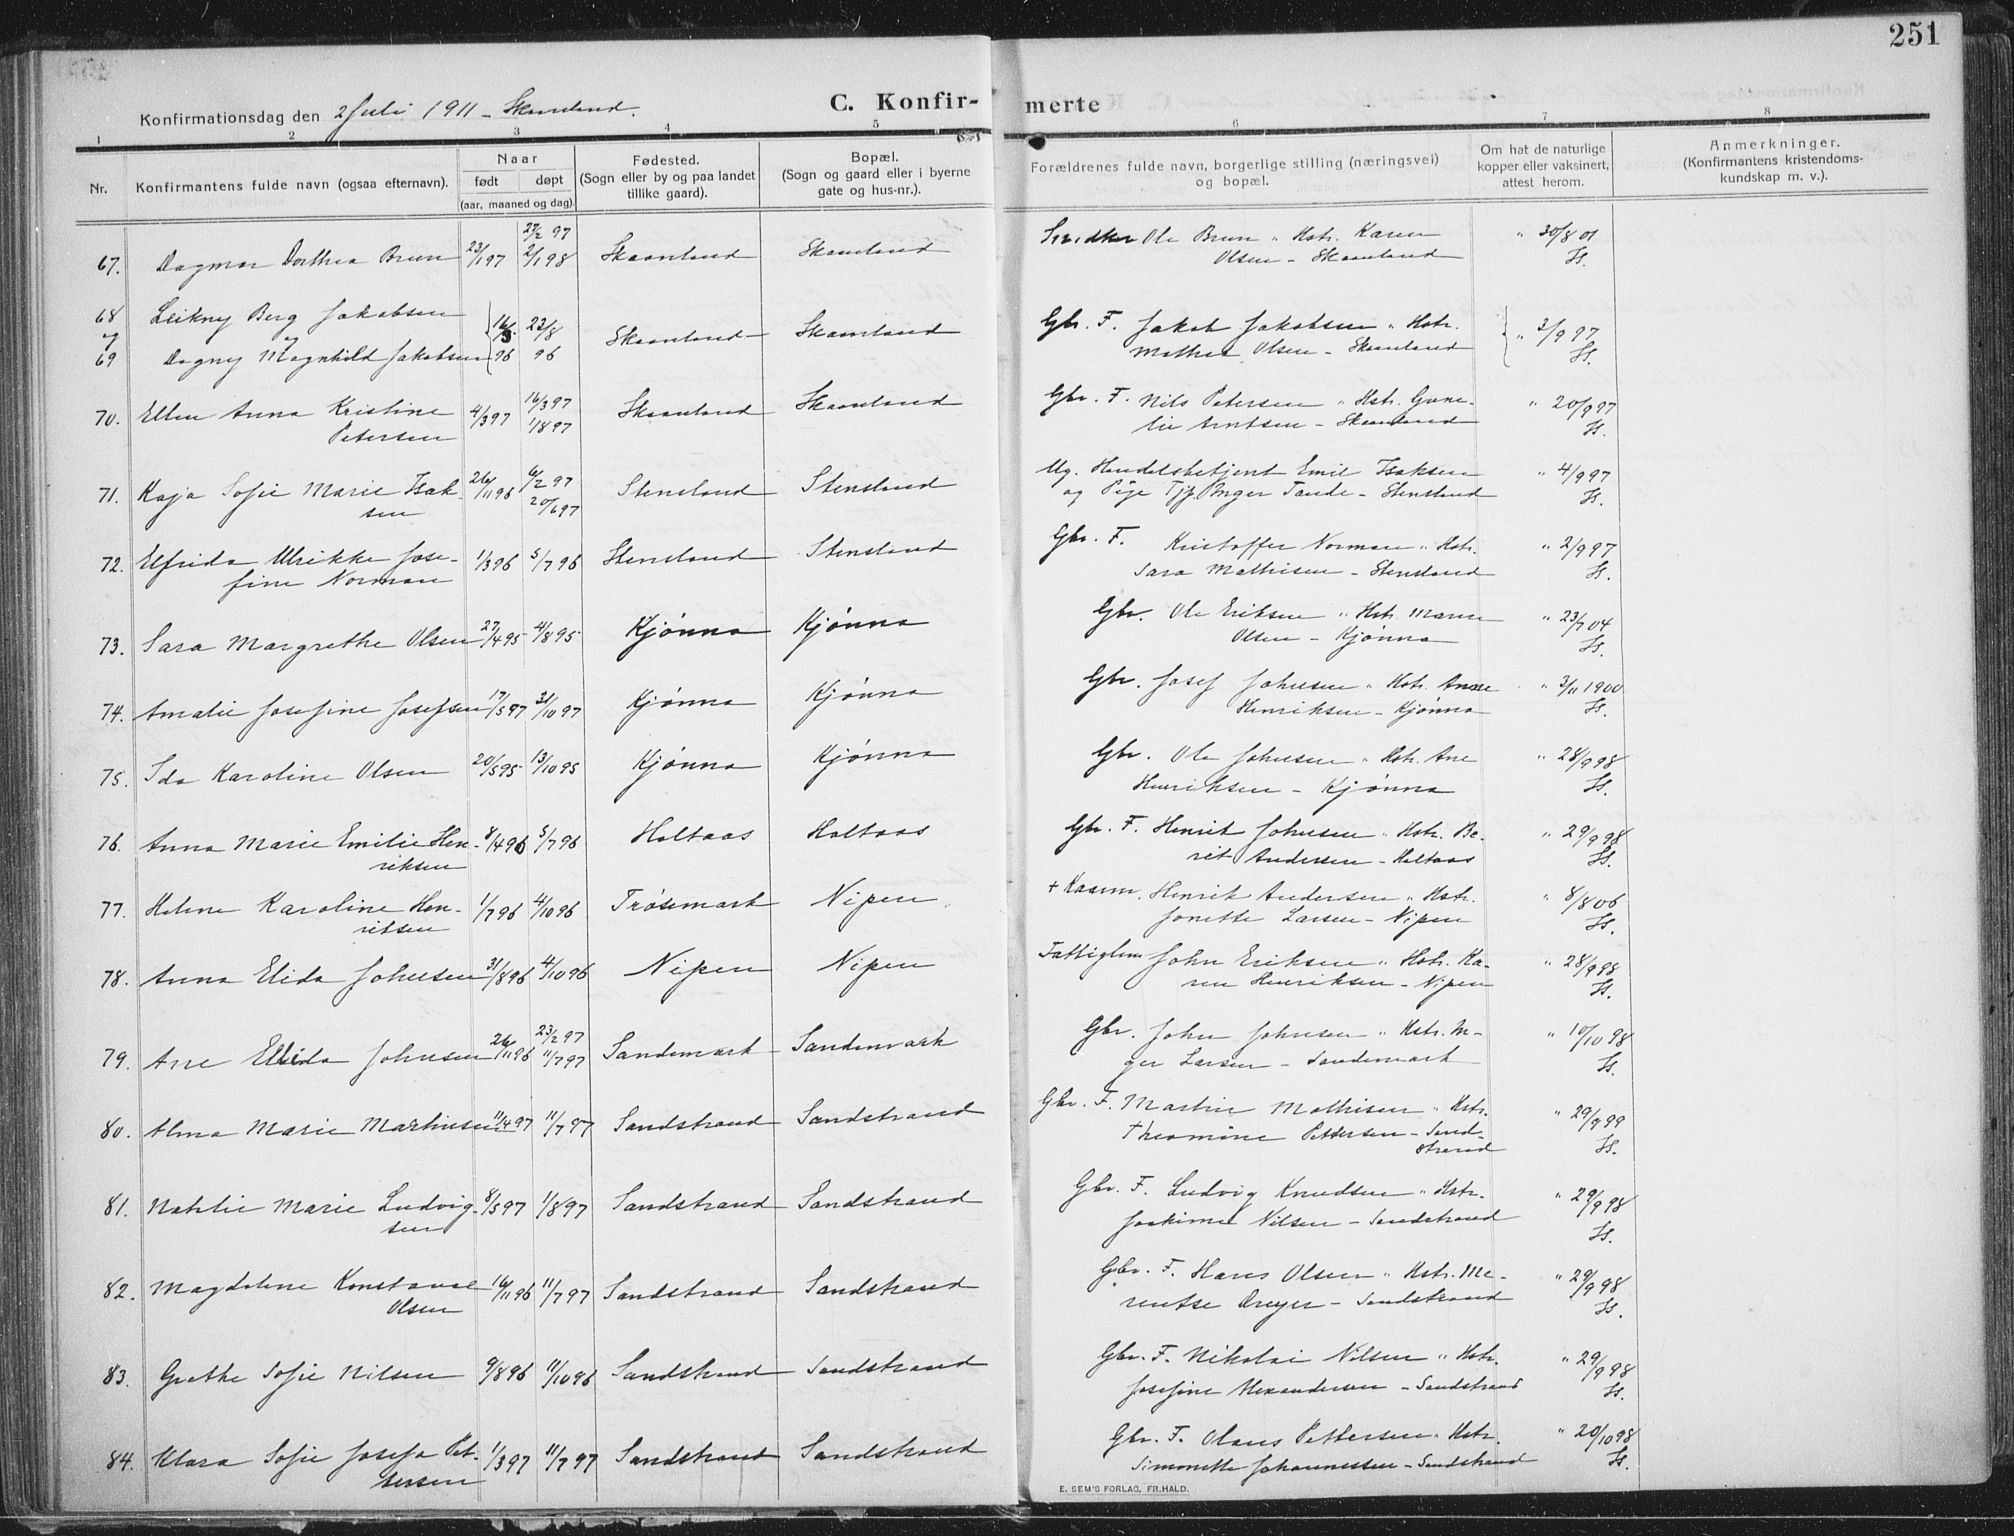 251
Konfirmationsdag den 2 Juli 1911 – Skaanland.
C. Konfir-merte
1 2 3 4 5 6 7 8
Nr.
Konfirmantens fulde navn (ogsaa efternavn).
Naar
født døpt
(aar, maaned og dag).
Fødested.
(Sogn eller by og paa landet
tillike gaard).
Bopæl.
(Sogn og gaard eller i byerne
gate og hus-nr.).
Forældrenes fulde navn, borgerlige stilling (næringsvei)
og bopæl.
Om hat de naturlige
kopper eller vaksinert,
attest herom.
Anmerkninger.
(Konfirmantens kristendoms-
kundskap m. v.).
67. Dagmar Dorthea Brun 23/1 97 27/2 97 2/1 98 Skaanland Skaanland
Snedker Ole Brun " Hstr. Karen
Olsen – Skaanland " 30/8 01
68 Leikny Berg Jakobsen
og
69 Dagny Magnhild Jakobsen 16/5 96 23/8 96 Skaanland Skaanland
Gbr. F. Jakob Jakobsen " Hstr.
Mathea Olsen – Skaanland " 3/9 97
70. Ellen Anna Kristine
Petersen 4/3 97 16/3 97 1/8 97 Skaanland Skaanland
Gbr. F. Nils Petersen " Hstr. Gune-
lie Arntsen – Skaanland " 20/9 97
71. Kaja Sofie Marie Isak-
sen 26/11 96 6/2 97 20/6 97 Stensland Stensland
Ug. Handelsbetjent Emil Isaksen
og Pige Tj. Inger Tande – Stensland " 4/9 97
72. Elfrida Ulrikke Jose-
fine Norman 1/3 96 5/7 96 Stensland Stensland
Gbr. F. Kristoffer Norman " Hstr.
Sara Mathisen – Stensland " 2/9 97
73. Sara Margrethe Olsen 27/4 95 4/8 95 Kjønna Kjønna
Gbr. Ole Eriksen " Hstr. Maren
Olsen – Kjønna " 23/7 04
74. Amalie Josefine Josefsen 17/5 97 31/10 97 Kjønna Kjønna
Gbr. Josef Johnsen " Hstr. Anne
Henriksen – Kjønna " 3/11 1900
75. Ida Karoline Olsen 20/5 95 13/10 95 Kjønna Kjønna
Gbr. Ole Johnsen " Hstr. Ane
Henriksen – Kjønna " 28/9 98
76. Anna Marie Emilie Hen-
riksen 8/4 96 5/7 96 Holtaas Holtaas
Gbr. F. Henrik Johnsen " Hstr. Be-
rit Andersen – Holtaas " 29/9 98
77. Helene Karoline Hen-
riksen 1/7 96 4/10 96 Trøsemark Nipen
+ Kaarm. Henrik Andersen " Hstr.
Jonette Larsen – Nipen " 8/8 06
78. Anna Elida Johnsen 31/8 96 4/10 96 Nipen Nipen
Fattiglem John Eriksen " Hstr. Ka-
ren Henriksen – Nipen " 28/9 98
79. Ane Elida Johnsen 26/11 96 23/2 97 11/7 97 Sandemark Sandemark
Gbr. John Johnsen " Hstr. In-
ger Larsen – Sandemark " 10/10 98
80. Alma Marie Martinsen 11/4 97 11/7 97 Sandstrand Sandstrand
Gbr. F. Martin Mathisen " Hstr.
Theomine Pettersen – Sand-
strand " 29/9 99
81. Natalie Marie Ludvig-
sen 8/5 97 1/8 97 Sandstrand Sandstrand
Gbr. F. Ludvig Knudsen " Hstr.
Joakime Nilsen – Sandstrand " 29/9 98
82. Magdalene Konstanse
Olsen 16/11 96 11/7 97 Sandstrand Sandstrand
Gbr. F. Hans Olsen " Hstr. Me-
rentse Dreyer – Sandstrand " 29/9 98
83. Grethe Sofie Nilsen 9/8 96 11/10 96 Sandstrand Sandstrand
Gbr. F. Nikolai Nilsen " Hstr.
Josefine Alexandersen – Sandstrand " 29/9 98
84. Klara Sofie Josefa Pet-
tersen 1/3 97 11/7 97 Sandstrand Sandstrand
Gbr. F. Olaus Pettersen " Hstr.
Simonette Johannessen – Sandstrand " 20/10 98
E. SEM'S FORLAG, FR.HALD.